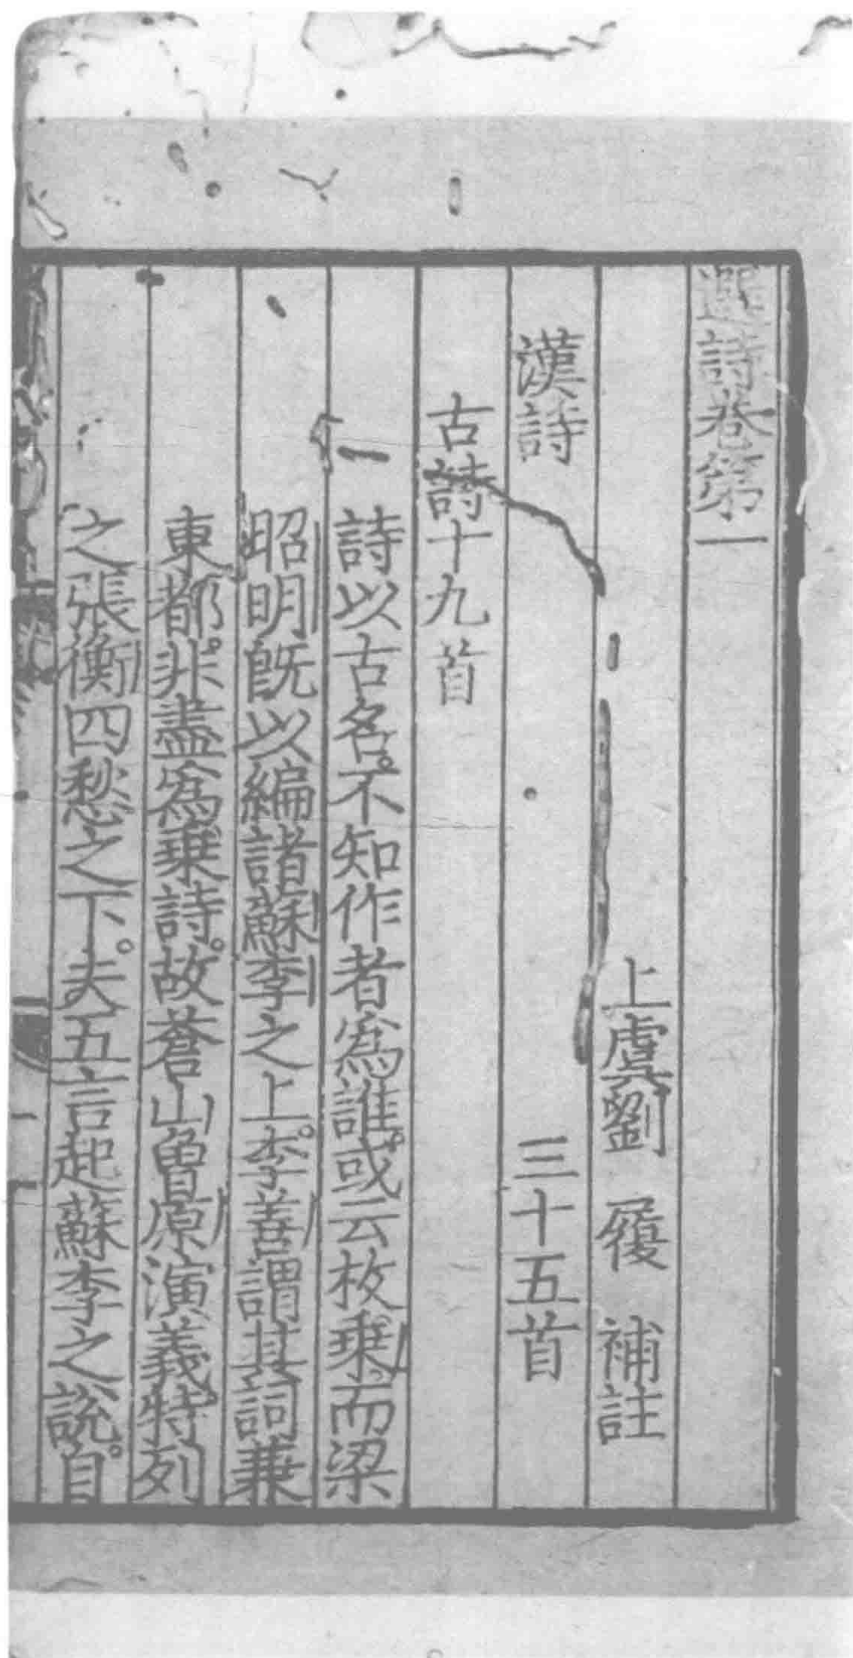 選詩卷第一
上虞劉 履 補註
漢詩 三十五首
古詩十九首
詩以古名。不知作者爲誰。或云枚乗。而梁
昭明旣以編諸蘇李之上。李善謂其詞兼
東都。非盡爲乗詩。故蒼山曾原演義特列
之張衡四愁之下。夫五言起蘇李之說。自